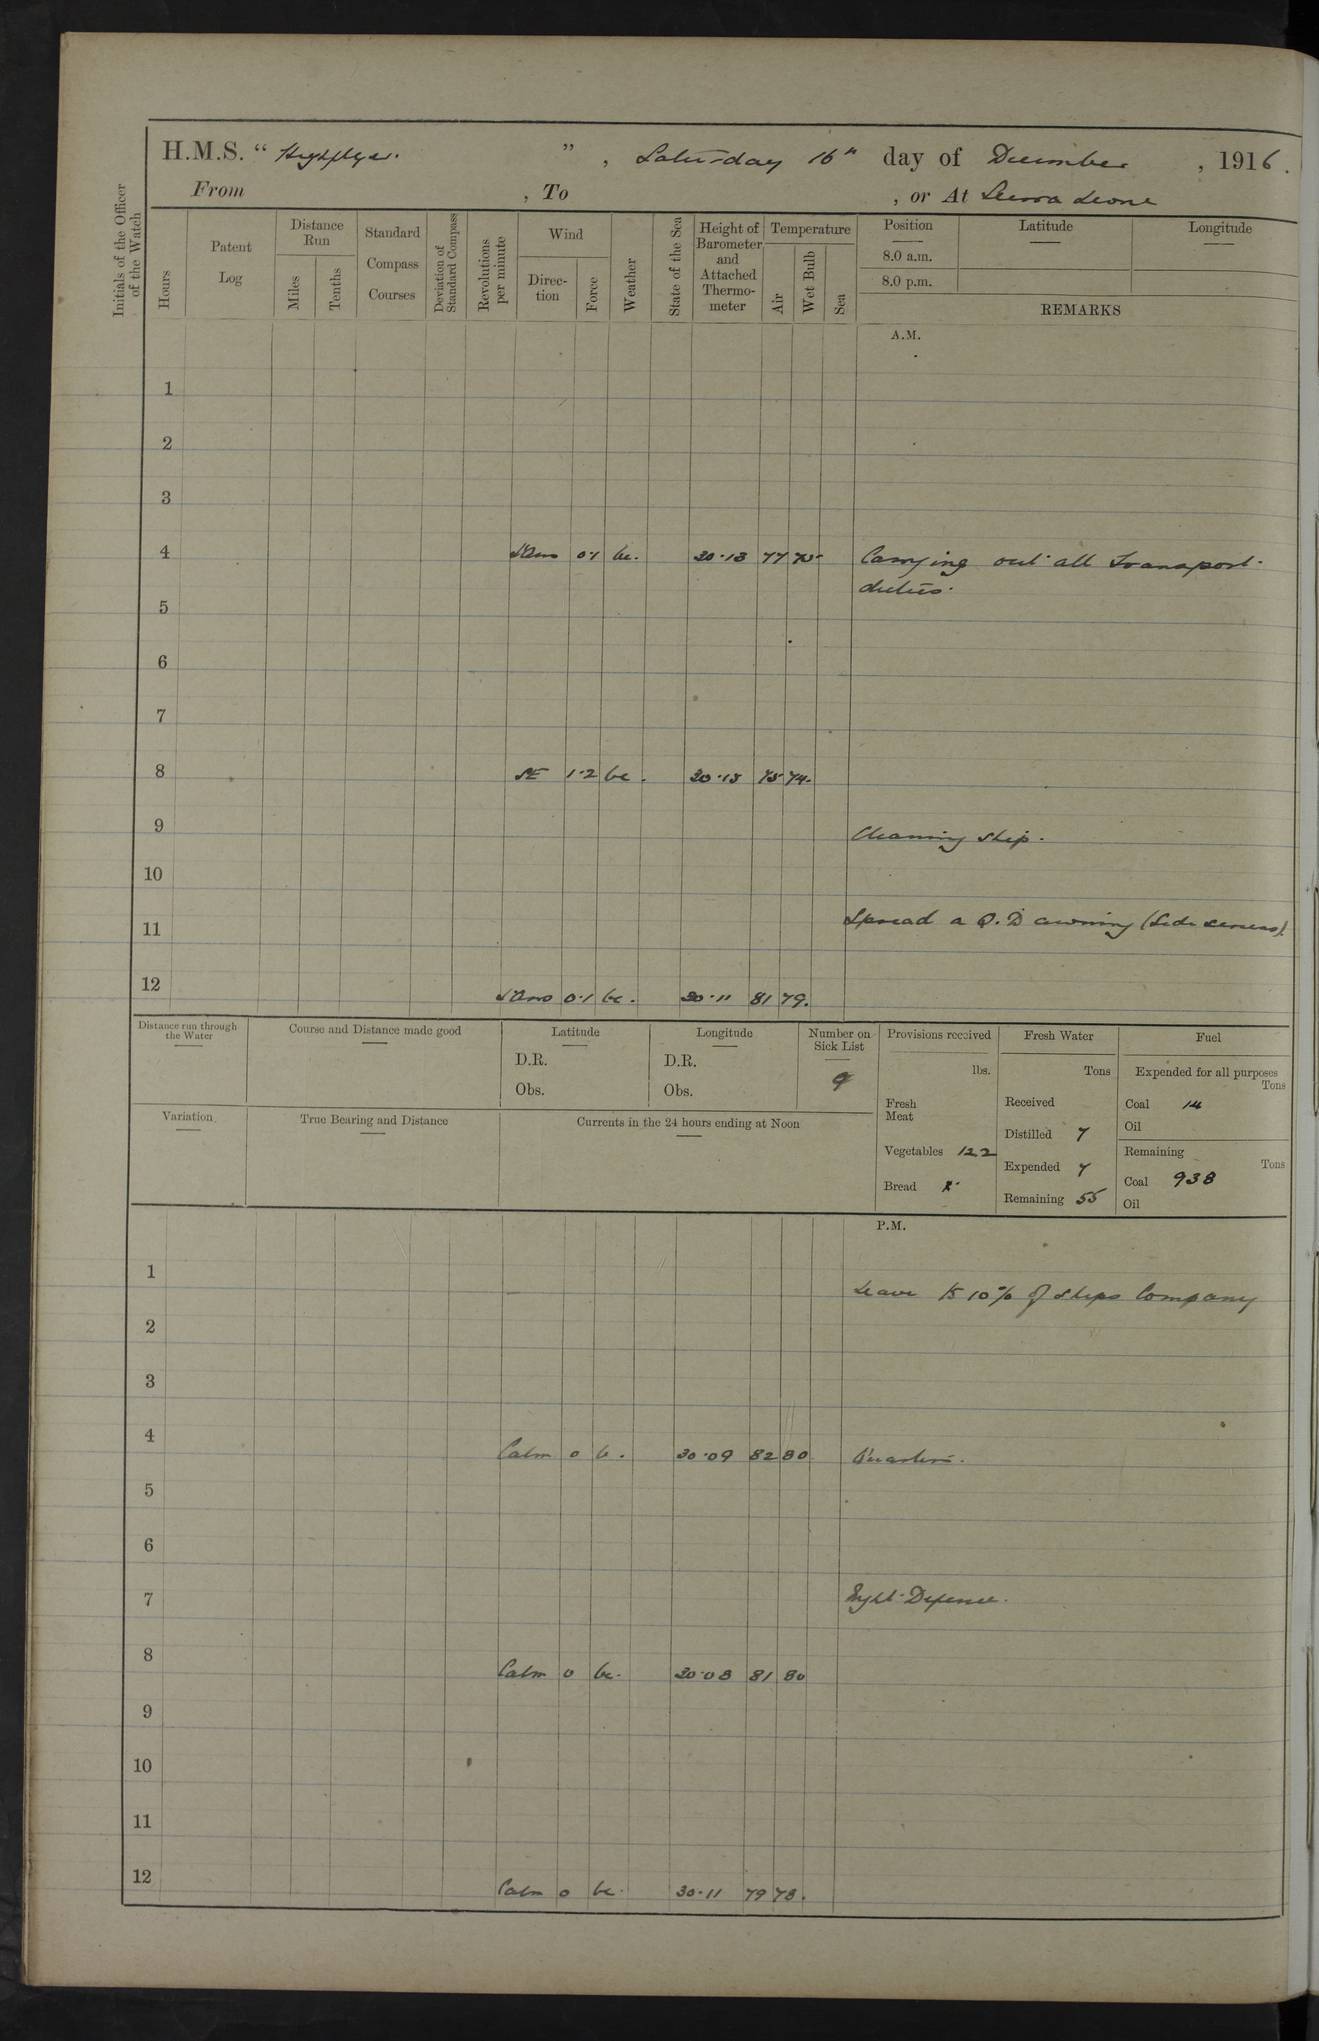 H.M.S. “ Highflyer. ” , Saturday 16th day of December , 1916.
From , To , or At Sierra Leone
Initials of the Officer of the Watch
Hours
Patent Log
Distance Run
Miles
Tenths
Standard Compass Courses
Deviation of Standard Compass
Revolutions per minute
Wind
Direction
Force
Weather
State of the Sea
Height of Barometer and Attached Thermometer
Temperature
Air
Wet Bulb
Sea
Position
8.0 a.m.
8.0 p.m.
Latitude
Longitude
REMARKS
A.M.
1
2
3
4 0·1 bc. 30·13 77 75 Carrying out all Transport
duties.
5
6
7
8 SE 1·2 bc. 30·15 75 74.
9 Cleaning Ship.
10
11 Spread a Q.D awning (Side screens).
12 0·1 bc. 30·11 81 79.
Distance run through the Water
Course and Distance made good
Latitude
D.R.
Obs.
Longitude
D.R.
Obs.
Number on Sick List
9
Provisions received
lbs.
Fresh Meat
Vegetables 122
Bread
Fresh Water
Tons
Received
Distilled 7
Expended 7
Remaining 55
Fuel
Expended for all purposes
Tons
Coal 14
Oil
Remaining
Tons
Coal 938
Oil
Variation
True Bearing and Distance
Currents in the 24 hours ending at Noon
P.M.
1 Leave to 10% of Ships Company
2
3
4 Calm 0 b. 30·09 82 80 Quarters.
5
6
7 Night Defence.
8 Calm 0 bc. 30·08 81 80
9
10
11
12 Calm 0 bc. 30·11 79 78.